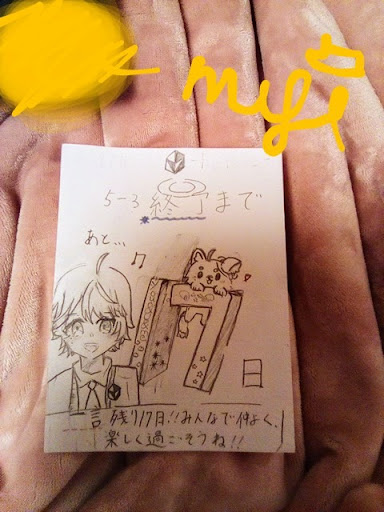 myl
5-3 終了まで
あと...
17
日
一言 残り17日!!みんなで仲よく、
楽しく過ごそうね!!